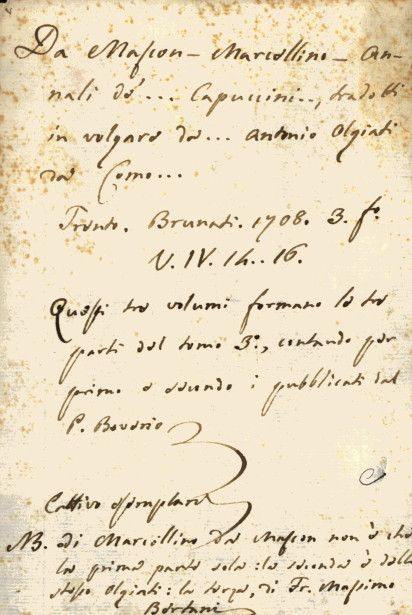 Da Mascon - Marcellino - An-
nali de'... Capuccini.., tradotti
in volgare da... Antonio Olgiati
da Como...
Trento. Brunati. 1708. 3. fo
V. IV. 14..16.
Questi tre volumi formano le tre
parti del tomo 3o., contando per
primo e secondo i pubblicati dal
P. Boverio
Cattivo esemplare
NB. di Marcellino da Mascon non è che
la prima parte sola: la seconda è dello
stesso Olgiati: la terza, di Fr. Massimo
Bertani